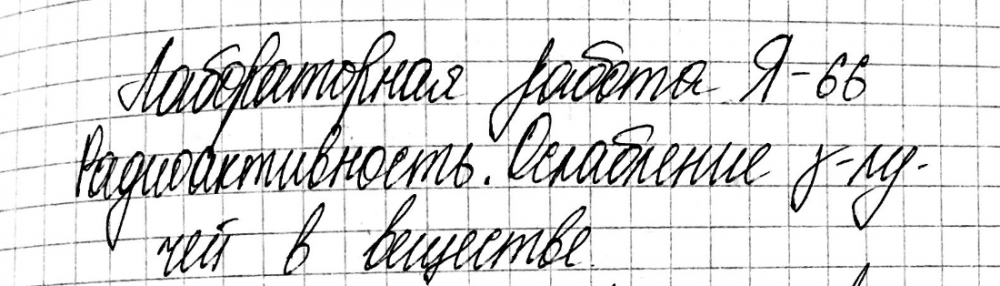 Лабораторная работа Я-66
Радиоактивность. Ослабление γ-лу-
чей в веществе.